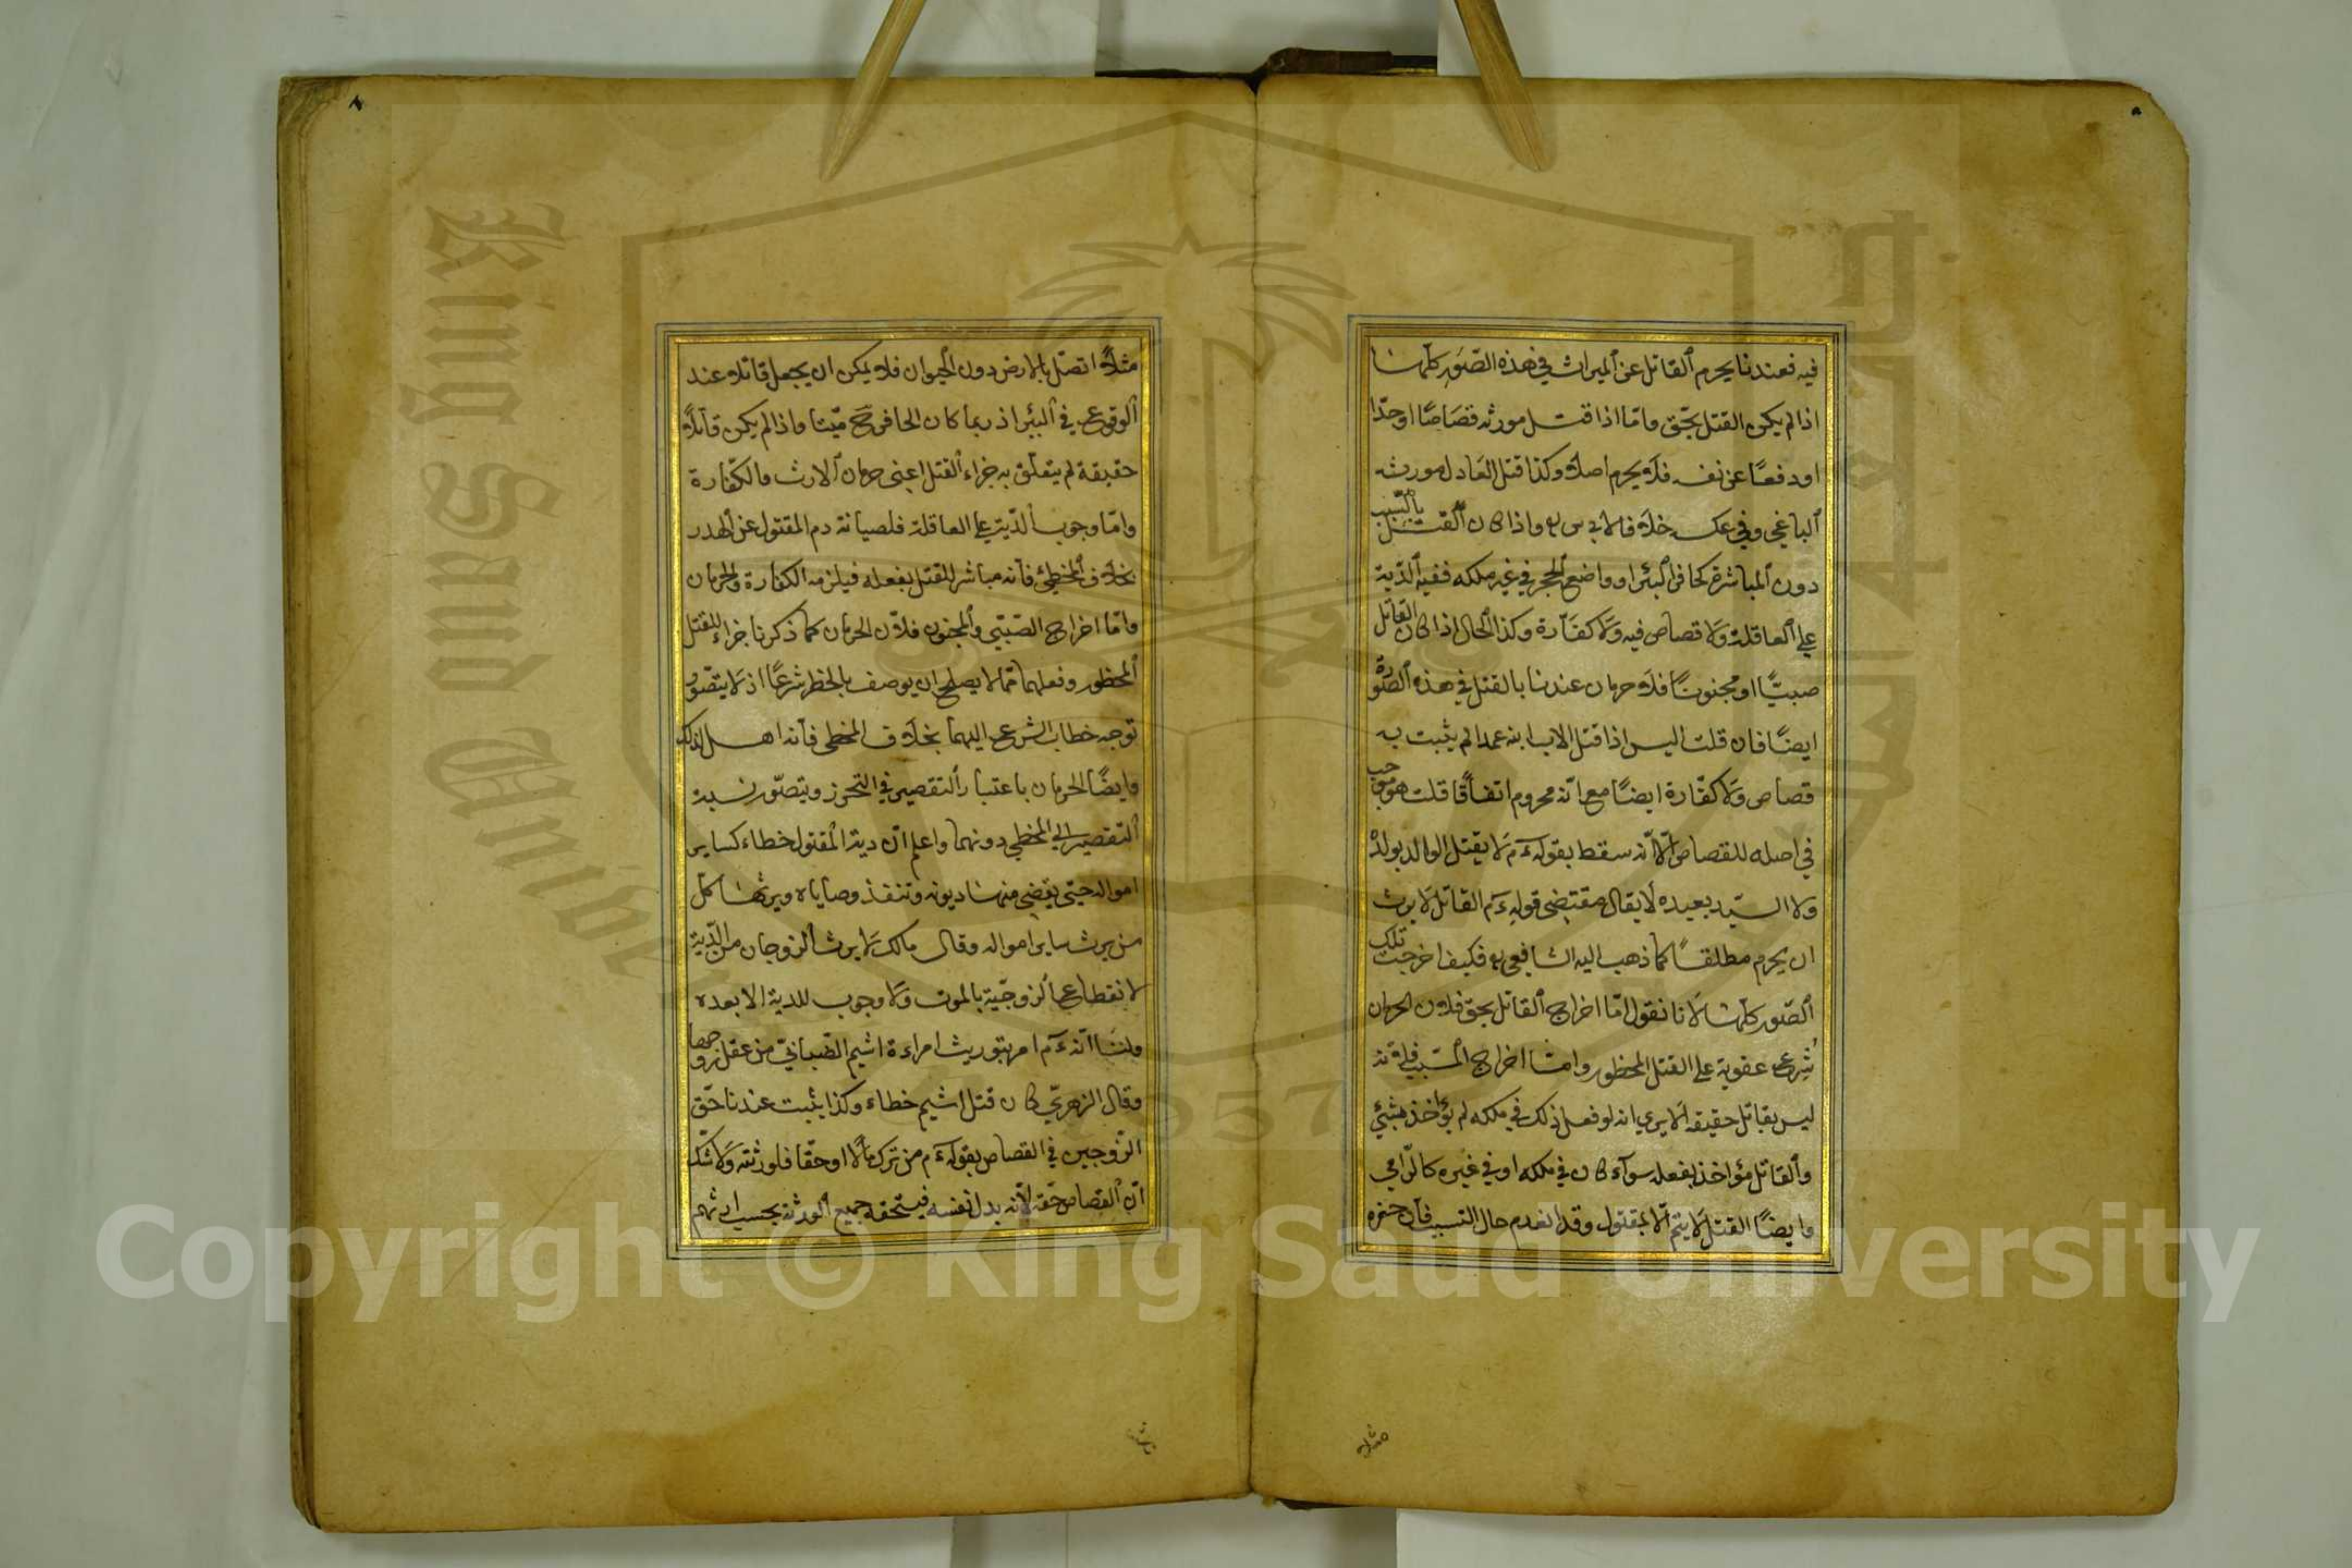 فيه فعندنا يحرم القاتل عن الميراث في هذه الصّور كلّها
اذا لم يكن القتل بحّق وامّا اذا قتل مورثه قصاصًا او حدّا
او دفعًا عن نفسه فلا يحرم اصلا وكذا قتل العادل مورثه
الباغي وفي عكسه خلاف لابي س رح واذا كان القتل بالتّسبيب
دون المباشرة كحافر البئر او واضع الحجر في غير ملكه ففيه الدّية
على العاقلة ولا قصاص فيه ولا كفّارة وكذا الحال اذا كان القاتل
صبيًّا او مجنونًا فلا حرمان عندنا بالقتل في هذه الصّورة
ايضًا فان قلت اليس اذا قتل الاب ابنه عمدا لم يثبت به
قصاص ولا كفّارة ايضًا مع انّه محروم اتفاقًا قلت هو موجب
في اصله للقصاص الّا انّه سقط بقوله ءم لا يقتل الوالد بولده
ولا السّيد بعبده لا يقال مقتضى قوله ءم القاتل لا يرث
ان يحرم مطلقًا كما ذهب اليه الشافعي رح فكيف اخرجت تلك
الصّور كلّها لانا نقول امّا اخراج القاتل بحق فلان الحرمان
شُرع عقوبة على القتل المحظور وامّا اخراج المسّبب فلانّه
ليس بقاتل حقيقة الا يرى انه لو فعل ذلك في ملكه لم يؤاخذ بشئ
والقاتل مؤاخذ بفعله سوآء كان في ملكه او في غيره كالرّامي
وايضًا القتل لا يتمّ الّا بمقتول وقد انعدم حال التسبيب فانّ حفره
مثلا
مثلًا اتصّل بالارض دون الحيوان فلا يمكن ان يجعل قاتلا عند
الوقوع في البئر اذ ربما كان الحافر ح ميّتا واذا لم يكن قاتلًا
حقيقة لم يتعلّق به جزاء القتل اعنى حرمان الارث والكفّارة
وامّا وجوب الدّية على العاقلة فلصيانة دم المقتول عن الهدر
بخلاف المخطئ فانه مباشر للقتل بفعله فيلزمه الكفارة والحرمان
وامّا اخراج الصّبّي والمجنون فلانّ الحرمان كما ذكرنا جزاء للقتل
المحظور وفعلهما ممّا لا يصلح ان يوصف بالحظر شرعًا اذ لا يتصّور
توجه خطاب الشرع اليهما بخلاف المخطى فانه اهل لذلك
وايضًا الحرمان باعتبار التقصير في التحرز ويتصّور نسبة
التقصير الى المخطى دونهما واعلم انّ دية المقتول خطاء كساير
امواله حتى يقضى منها ديونه وتنفذ وصاياه ويرثها كلّ
من يرث ساير امواله وقال مالك لا يرث الزوجان من الدّية
لانقطاع الزوجّية بالموت ولا وجوب للدية الا بعده
ولنا انّه ءم امر بتوريث امراءة اشيم الضبابّي من عقل زوجها
وقال الزهري كان قتل اشيم خطاء وكذا يثبت عندنا حّق
الزّوجين في القصاص بقوله ءم من ترك مالًا او حقّا فلورثته ولا شّك
انّ القصاص حقه لانّه بدل نفسه فيستحقه جميع الورثة بحسب ارثهم